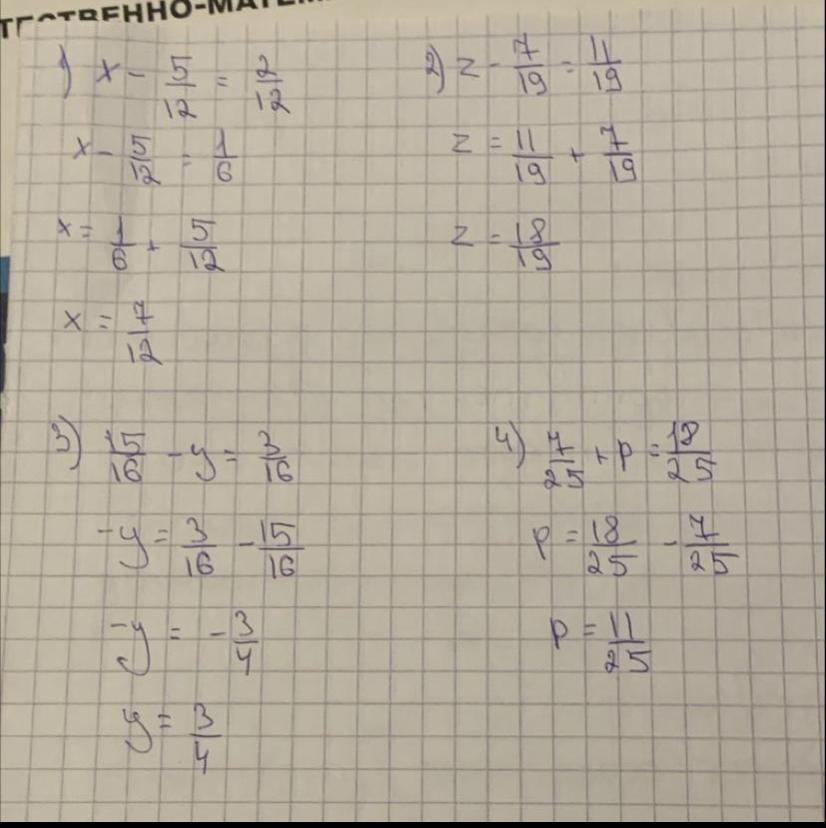 ТЕСТВЕННО-МАТЕМ
1) x - 5/12 = 2/12
x - 5/12 = 1/6
x = 1/6 + 5/12
x = 7/12
2) z - 7/19 = 11/19
z = 11/19 + 7/19
z = 18/19
3) 15/16 - y = 3/16
-y = 3/16 - 15/16
-y = -3/4
y = 3/4
4) 7/25 + p = 18/25
p = 18/25 - 7/25
p = 11/25